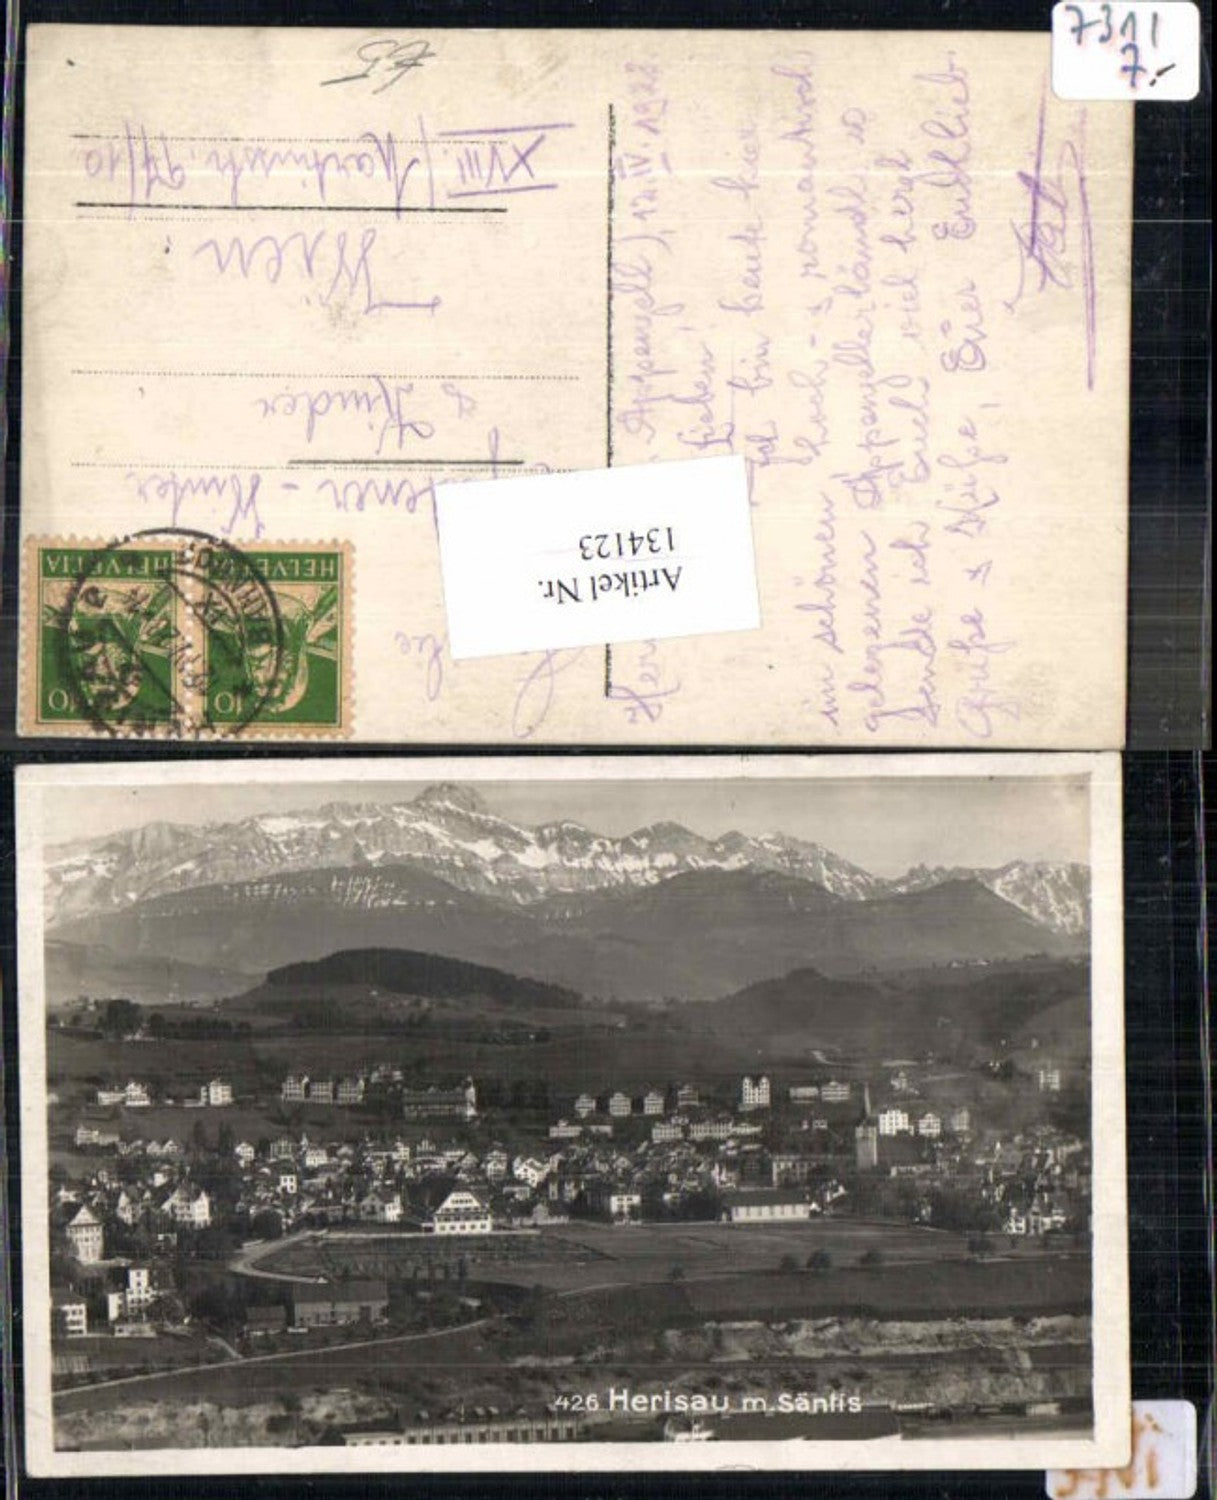 7311
7.-
Artikel Nr.
134123
Appenzell), 12.IV.1928.
Lieben!
Ich bin heute hier
im schönen hoch- & romantisch
gelegenen Appenzellerländli, so
sende ich Euch viel herzl.
Grüße & Küße, Euer Endlieb
& Kinder
Wien
XVIII./Martinstr. 94/10
HELVETIA
HELVETIA
10
10
426 Herisau m. Säntis